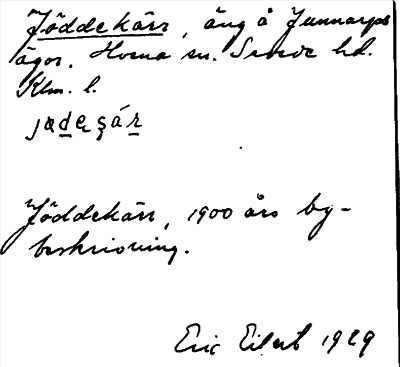 Jöddekärr, äng å Junnarps
ägor. Hvena sn. Sevede hd.
Klm. l.
Jöddekärr, 1900 års by-
beskrivning.
Eric Eilert 1929